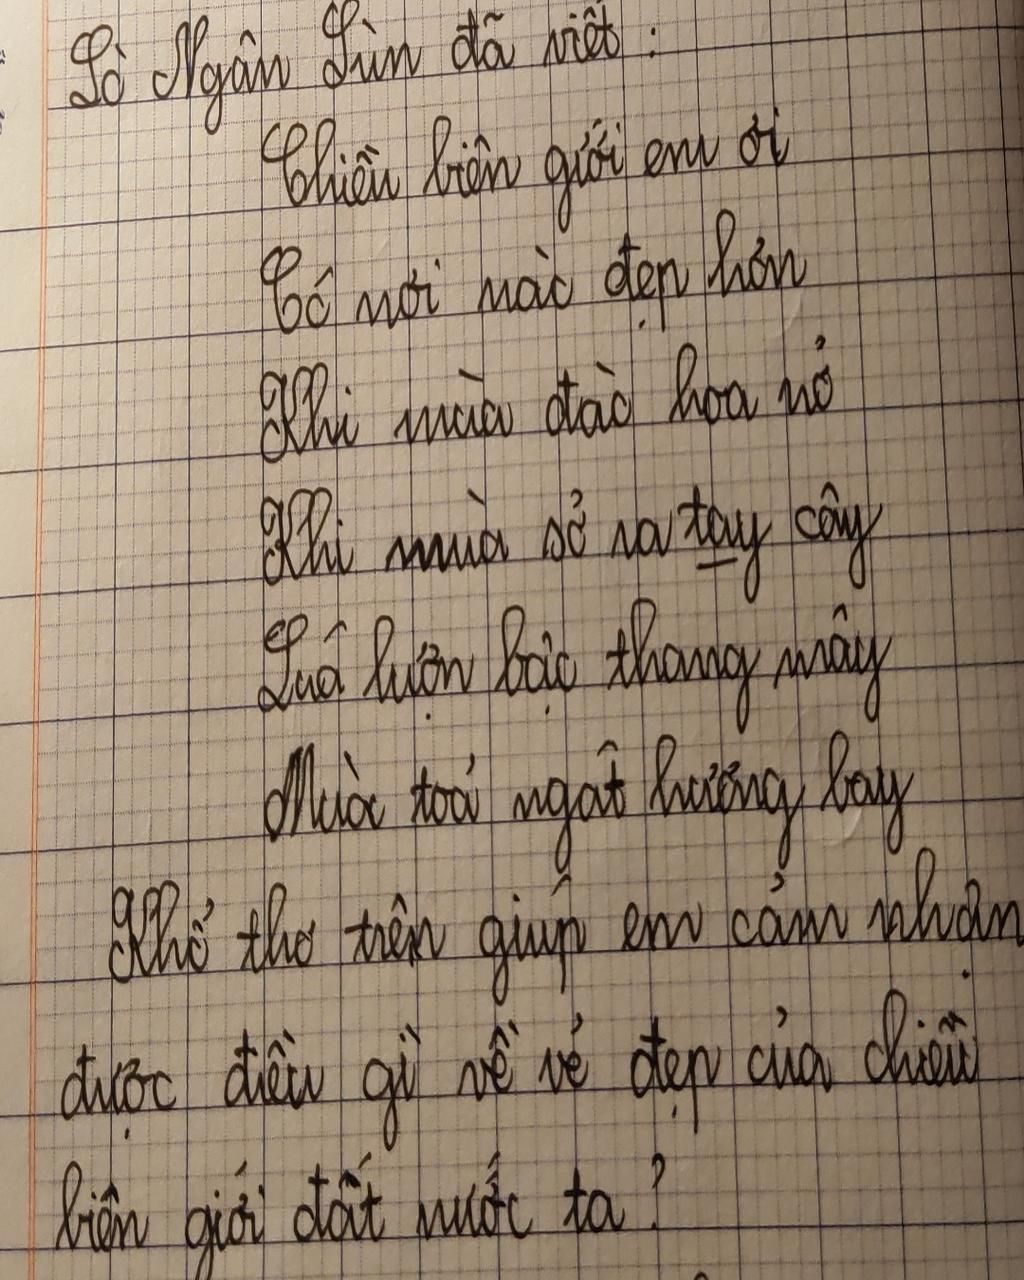 Lò Ngân Sủn đã viết :
Chiều biên giới em ơi
Có nơi nào đẹp hơn
Khi mùa đào hoa nở
Khi mùa sở ra tay cây
Lúa lượn bậc thang mây
Mùa toả ngát hương bay
Khổ thơ trên giúp em cảm nhận
được điều gì về vẻ đẹp của chiều
biên giới đất nước ta ?